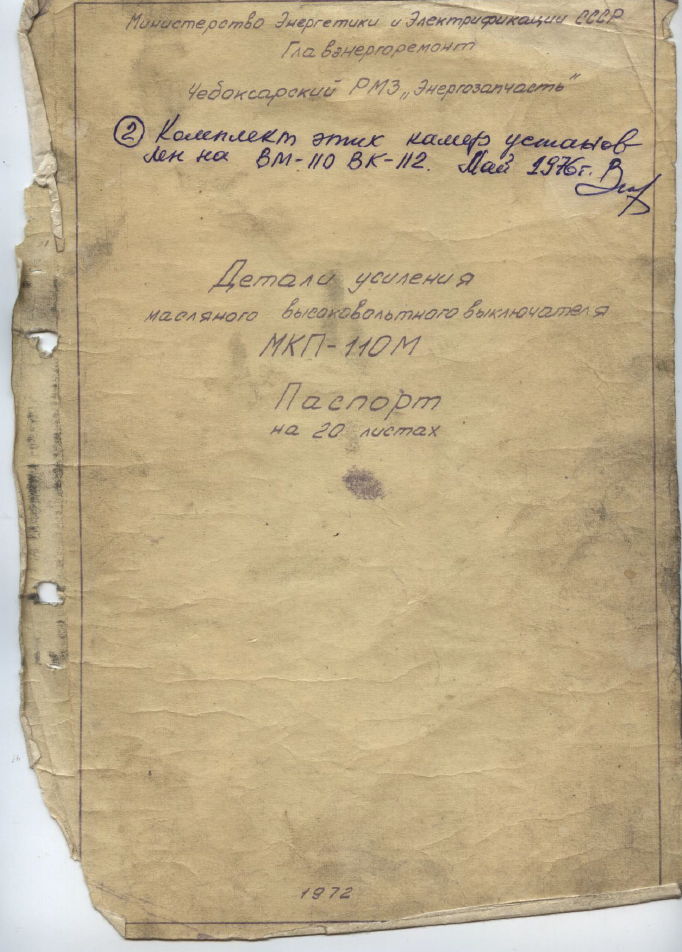 Министерство Энергетики и Электрификации СССР
Главэнергоремонт
Чебоксарский РМЗ „Энергозапчасть"
② Комплект этих камер установ-
лен на ВМ-110 ВК-112. Май 1976г.
Детали усиления
масляного высоковольтного выключателя
МКП-110М
Паспорт
на 20 листах
1972